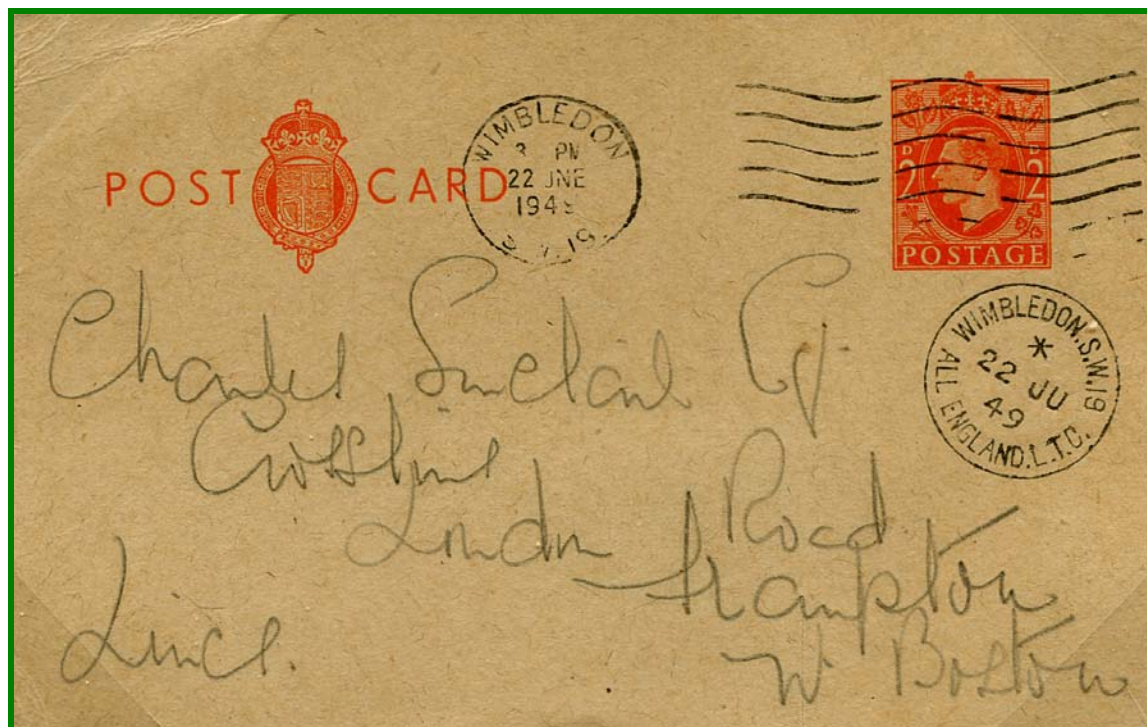 POST CARD
WIMBLEDON
3 PM
22 JNE
1949
S.W.19.
2D 2D
POSTAGE
WIMBLEDON.S.W.19
*
22 JU
49
ALL ENGLAND.L.T.C.
Charles Sinclair
London Road
Frampton
Lincs.
Boston